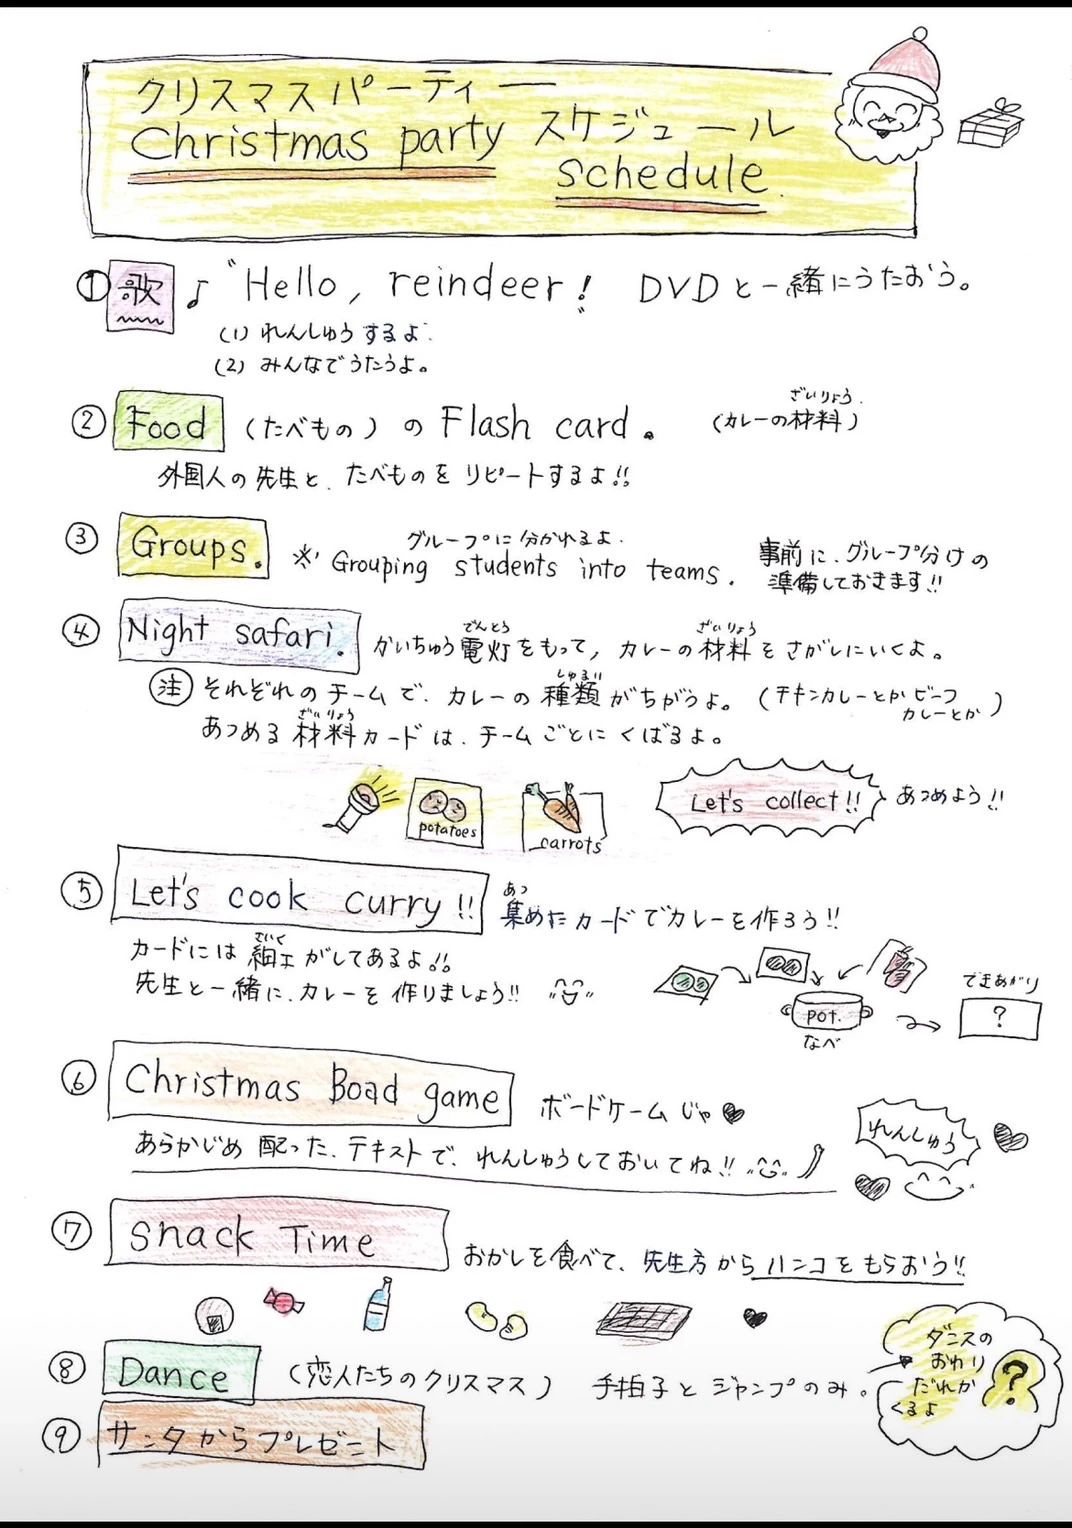 クリスマスパーティー スケジュール
Christmas party schedule
① 歌 ♪ "Hello, reindeer!" DVDと一緒にうたおう。
(1) れんしゅうするよ.
(2) みんなでうたうよ。
② Food (たべもの) の Flash card. (カレーの材料)
ざいりょう
外国人の先生と、たべものを リピートするよ!!
③ Groups. グループに分かれるよ.
※ Grouping students into teams. 事前に、グループ分けの
準備しておきます!!
④ Night safari. かいちゅう電灯をもって, カレーの材料をさがしにいくよ。
でんとう ざいりょう
注 それぞれのチームで、カレーの種類がちがうよ。(チキンカレーとかビーフカレーとか)
しゅるい
あつめる材料カードは、チームごとにくばるよ。
ざいりょう
potatoes
carrots
Let's collect!! あつめよう!!
⑤ Let's cook curry!! 集めたカードでカレーを作ろう!!
あつ
カードには細工がしてあるよ!!
さいく
先生と一緒に、カレーを作りましょう!!
pot.
なべ
できあがり
?
⑥ Christmas Boad game ボードゲームじゃ♥
あらかじめ配った、テキストで、れんしゅうしておいてね!!
れんしゅう
⑦ Snack Time おかしを食べて、先生方からハンコをもらおう!!
⑧ Dance (恋人たちのクリスマス) 手拍子とジャンプのみ。
ダンスの
おわり
だれか
くるよ
?
⑨ サンタからプレゼント